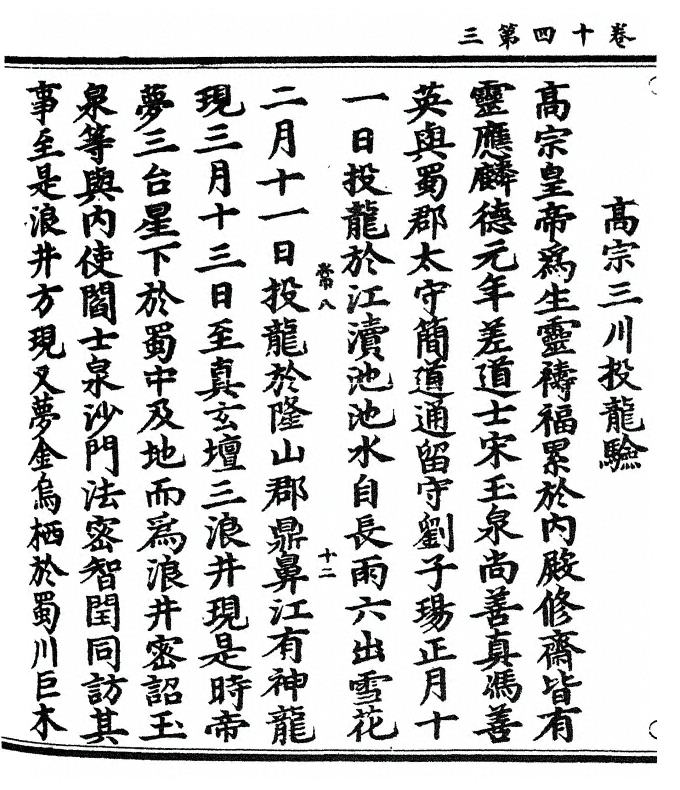 卷十四第三
高宗三川投龍驗
高宗皇帝爲生靈禱福累於內殿修齋皆有
靈應麟德元年差道士宋玉泉尚善真馮善
英與蜀郡太守簡道通留守劉子瑒正月十
一日投龍於江瀆池池水自長雨六出雪花
常八
十二
二月十一日投龍於隆山郡鼎鼻江有神龍
現三月十三日至真玄壇三浪井現是時帝
夢三台星下於蜀中及地而爲浪井密詔玉
泉等與內使閻士泉沙門法密智閏同訪其
事至是浪井方現又夢金烏栖於蜀川巨木